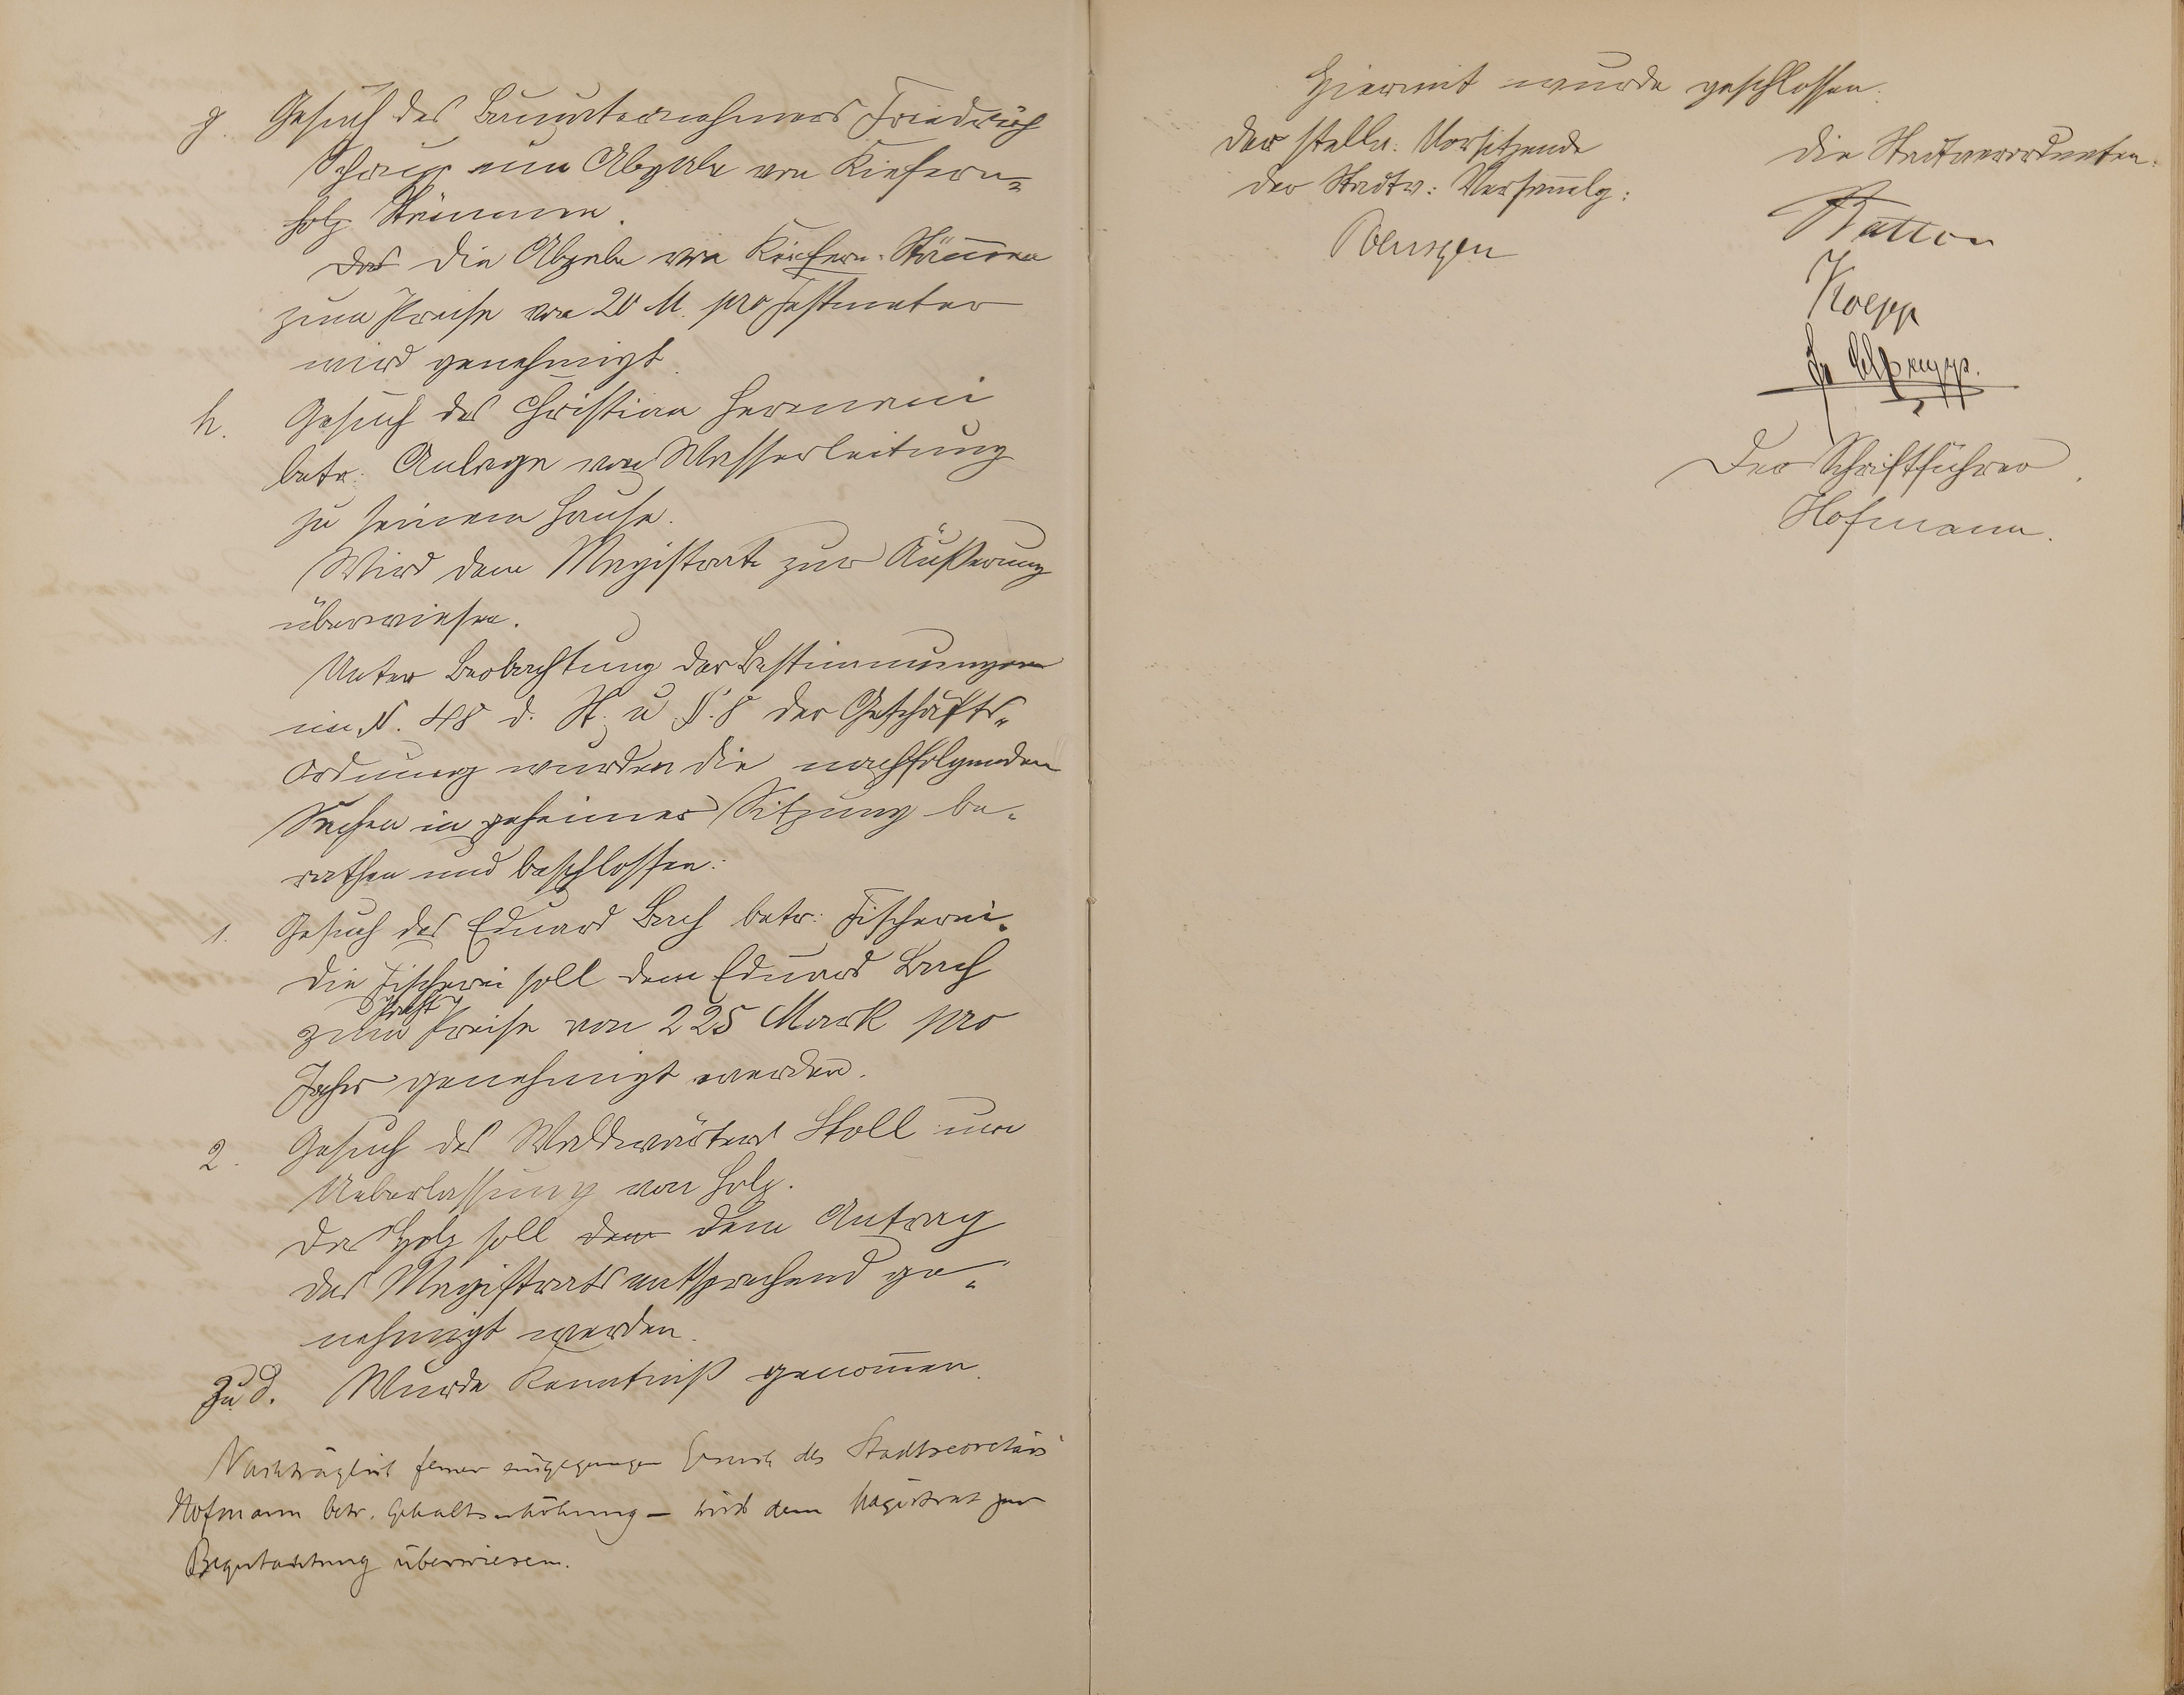 g. Gesuch des Bauunternehmers Friedrich
Schaus um Abgabe von Kiefern-
holz Stämmen.
Das Die Abgabe von Kiefern-Stämmen
zum Preise von 20 M. pro Festmeter
wird genehmigt.
h. Gesuch des Christian Hermani
betr: Anlage von Wasserleitung
zu seinem Hause.
Wird dem Magistrate zur Äußerung
überwiesen.
Unter Beobachtung der Bestimmungen
im §. 48 d. St. u §. 8 der Geschäfts-
Ordnung wurden die nachfolgenden
Sachen in geheimer Sitzung be-
rathen und beschlossen:
1. Gesuch des Eduard Bach betr: Fischerei.
Die Fischerei soll dem Eduard Bach
zum Pacht Preise von 225 Mark pro
Jahr genehmigt werden.
2. Gesuch des Waldwärters Stoll um
Ueberlassung von Holz.
Das Holz soll dem dem Antrag
des Magistrats entsprechend ge-
nehmigt werden.
Zu d. Wurde Kenntniß genommen.
Nachträglich ferner eingegangen Gesuch des Stadtsecretärs
Hofmann betr. Gehaltserhöhung – wird dem Magistrat zur
Begutachtung überwiesen.
Hiermit wurde geschlossen.
Der stellv. Vorsitzende
der Stadtv: Versammlg:
Poensgen
Die Stadtverordneten.
Ratton
Koepp
Der Schriftführer
Hofmann.